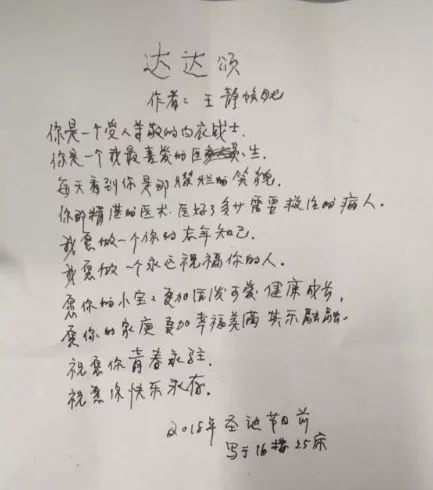 达达颂
作者：王静
你是一个受人尊敬的白衣战士.
你是一个我最喜爱的医生.
每天看到你是那灿烂的笑貌.
你那精湛的医术.医好了多少需要救治的病人.
我愿做一个你的忘年知己.
我愿做一个永远祝福你的人.
愿你的小宝：更加活泼可爱健康成长,
愿你的家庭更加幸福美满 其乐融融.
祝愿你青春永驻.
祝愿你快乐永存.
2018年圣诞节日前
写于16楼25床